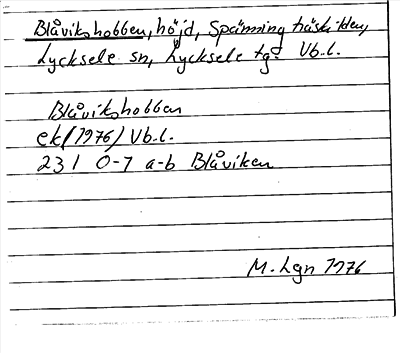 Blåvikshobben, höjd, Spänning träskiden,
Lycksele sn, Lycksele tgd Vb.l.
Blåvikshobben
ek (1976) Vb.l.
231 0-7 a-b Blåviken
M. Lgn 1976